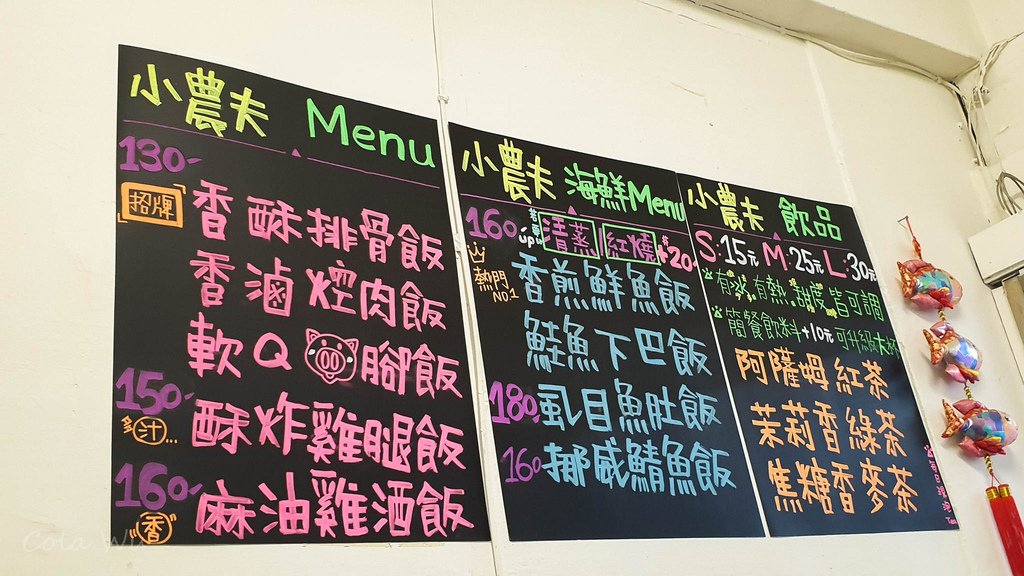 小農夫 Menu
130-
招牌 香酥排骨飯
香滷焢肉飯
軟Q腳飯
150-
多汁... 酥炸雞腿飯
160-
"香" 麻油雞酒飯
小農夫 海鮮Menu
160 up 清蒸 紅燒 $+20
熱門 NO.1 香煎鮮魚飯
鮭魚下巴飯
180 虱目魚肚飯
160 挪威鯖魚飯
小農夫 飲品
S:15元 M:25元 L:30元
有冰.有熱.甜度皆可調
簡餐飲料+10元可升級大杯
阿薩姆紅茶
茉莉香綠茶
焦糖香麥茶
Cola Wu